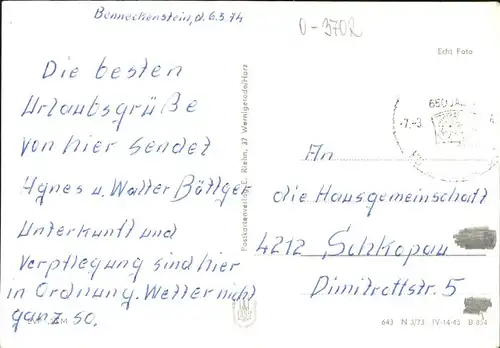 Benneckenstein, d. 6.3.74
0-3702
Echt Foto
Die besten
Urlaubsgrüße
von hier sendet
Agnes u. Walter Böttger
Unterkunft und
Verpflegung sind hier
in Ordnung. Wetter nicht
ganz so.
Postkartenverlag E. Riehn, 37 Wernigerode/Harz
650 JA
-7.-3
An
die Hausgemeinschaft
4212 Schkopau
Dimitroffstr. 5
643 N 3/73 IV-14-45 B 854